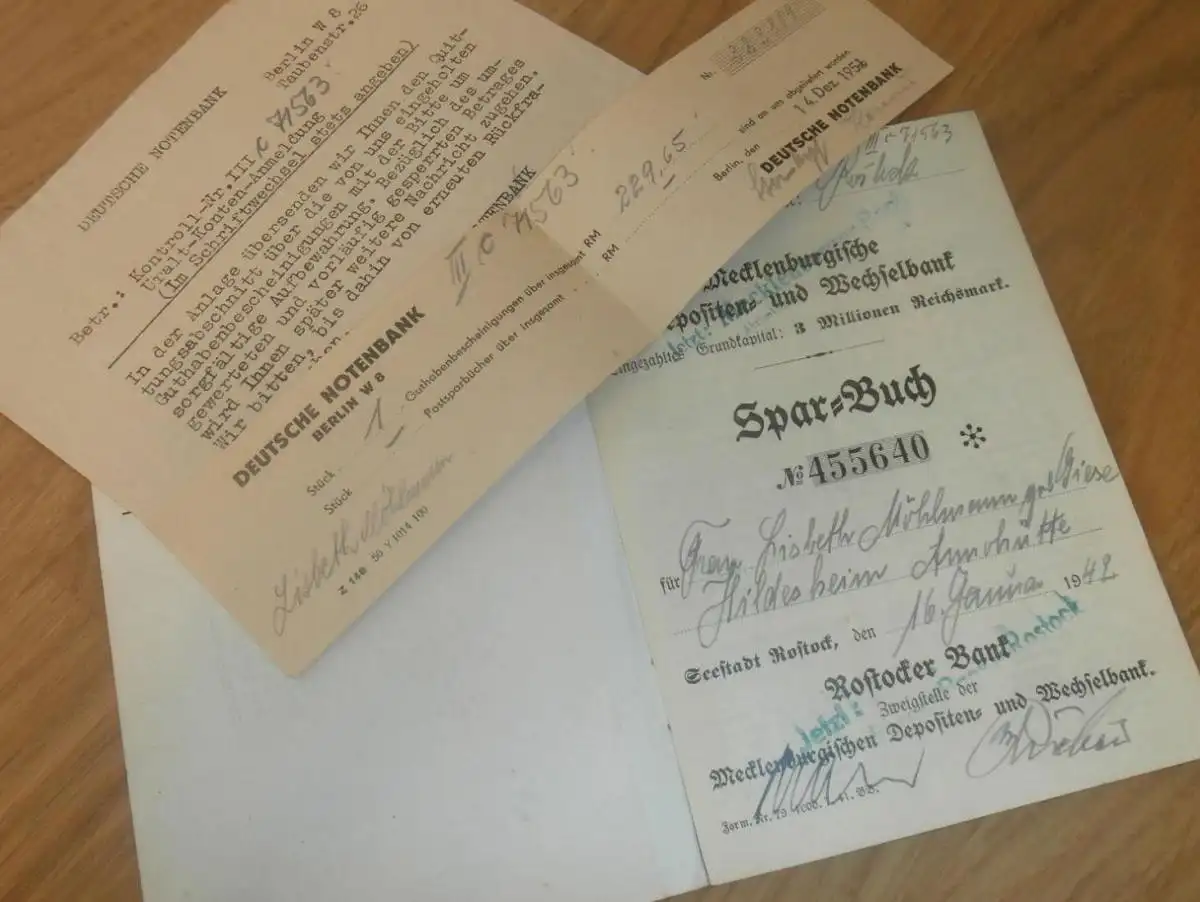 DEUTSCHE NOTENBANK
Berlin W 8
Taubenstr.26
Betr.: Kontroll-Nr. III c 71563
Uralt-Konten-Anmeldung
(Im Schriftwechsel stets angeben)
In der Anlage übersenden wir Ihnen den Quit-
tungsabschnitt über die von uns eingeholten
Guthabenbescheinigungen mit der Bitte um
sorgfältige Aufbewahrung. Bezüglich des um-
gewerteten und vorläufig gesperrten Betrages
wird Ihnen später weitere Nachricht zugehen.
Wir bitten, bis dahin von erneuten Rückfra-
DEUTSCHE NOTENBANK
BERLIN W 8
III c 71563
Nr.
Stück 1 Guthabenbescheinigungen über insgesamt RM 229,65
Stück Postsparbücher über insgesamt RM
sind an uns abgeliefert worden
Berlin, den 14. Dez. 1956
DEUTSCHE NOTENBANK
Lisbeth Möhlmann
Z 146 56 Y 1014 100
III c 71563
Mecklenburgische
Depositen- und Wechselbank
Jetzt:
Eingezahltes Grundkapital: 3 Millionen Reichsmark.
Spar-Buch
№ 455640 *
für Frau Lisbeth Möhlmann geb Giese
Hildesheim
Seestadt Rostock, den 16. Janua 1942
Rostocker Bank
Jetzt: Rostock
Zweigstelle der
Mecklenburgischen Depositen- und Wechselbank.